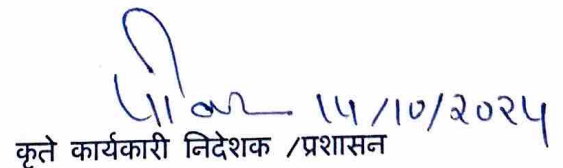 14/10/2024
कृते कार्यकारी निदेशक /प्रशासन